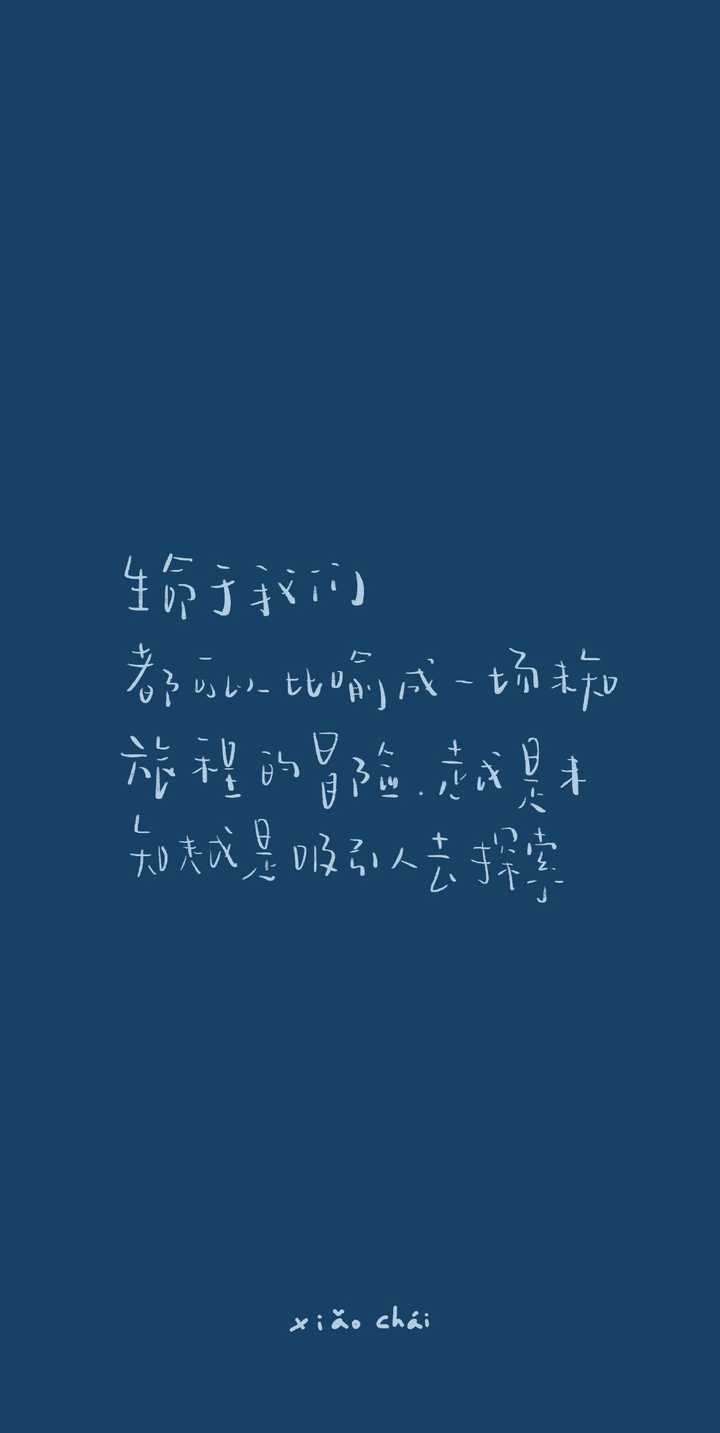 生命于我们
都可以比喻成一场未知
旅程的冒险.越是未
知越是吸引人去探索
xiǎo chái